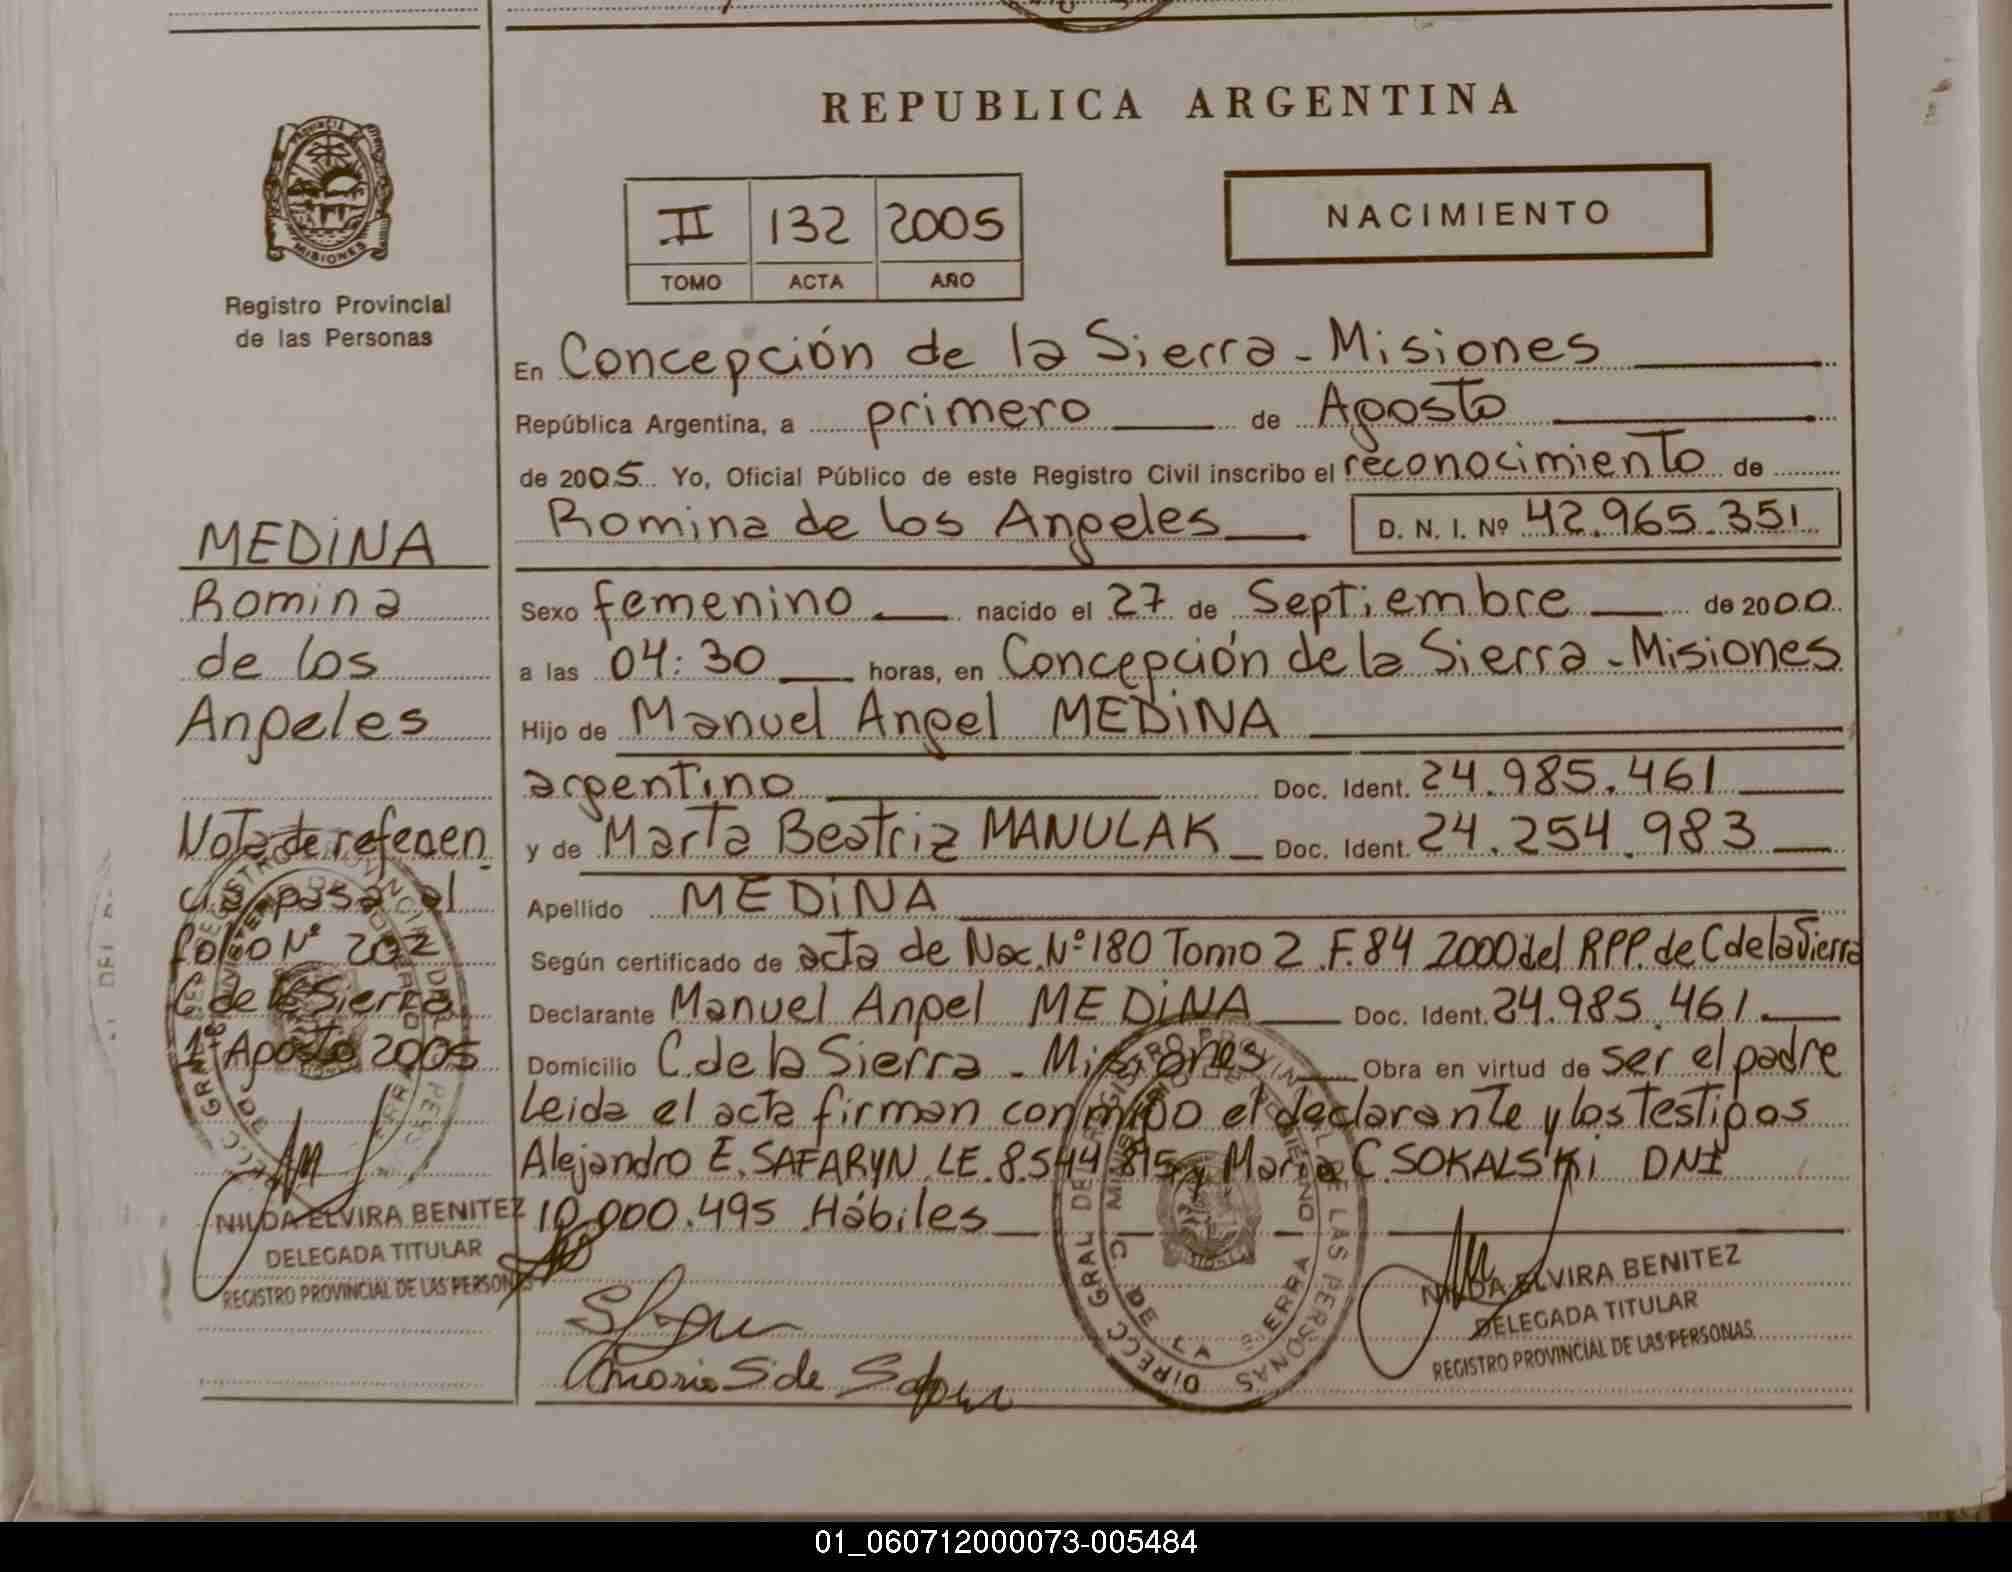 REPUBLICA ARGENTINA
PROVINCIA DE
MISIONES
Registro Provincial
de las Personas
II 132 2005
TOMO ACTA AÑO
NACIMIENTO
En Concepción de la Sierra - Misiones
República Argentina, a primero de Agosto
de 2005 Yo, Oficial Público de este Registro Civil inscribo el reconocimiento de
Romina de los Angeles D. N. I. Nº 42.965.351
Sexo femenino nacido el 27 de Septiembre de 2000
a las 04:30 horas, en Concepción de la Sierra - Misiones
Hijo de Manuel Angel MEDINA
argentino Doc. Ident. 24.985.461
y de Marta Beatriz MANULAK Doc. Ident. 24.254.983
Apellido MEDINA
Según certificado de acta de Nac. Nº 180 Tomo 2 F. 84 2000 del RPP. de C de la Sierra
Declarante Manuel Angel MEDINA Doc. Ident. 24.985.461
Domicilio C de la Sierra - Misiones Obra en virtud de ser el padre
Leida el acta firman conmigo el declarante y los testigos
Alejandro E. SAFARYN LE. 8.544.815 y Maria C. SOKALSKI DNI
10.000.495 Hábiles
MEDINA
Romina
de los
Angeles
Nota de referen
cia pasa al
folio Nº 202
C de la Sierra
1º Agosto 2005
NILDA ELVIRA BENITEZ
DELEGADA TITULAR
REGISTRO PROVINCIAL DE LAS PERSONAS
NILDA ELVIRA BENITEZ
DELEGADA TITULAR
REGISTRO PROVINCIAL DE LAS PERSONAS
01_060712000073-005484